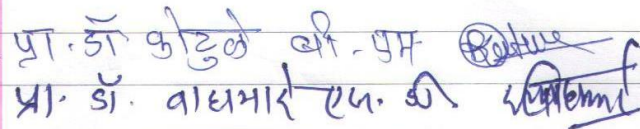 प्रा. डॉ कोटुळे बी. एम
प्रा. डॉ. वाघमारे एल. डी.